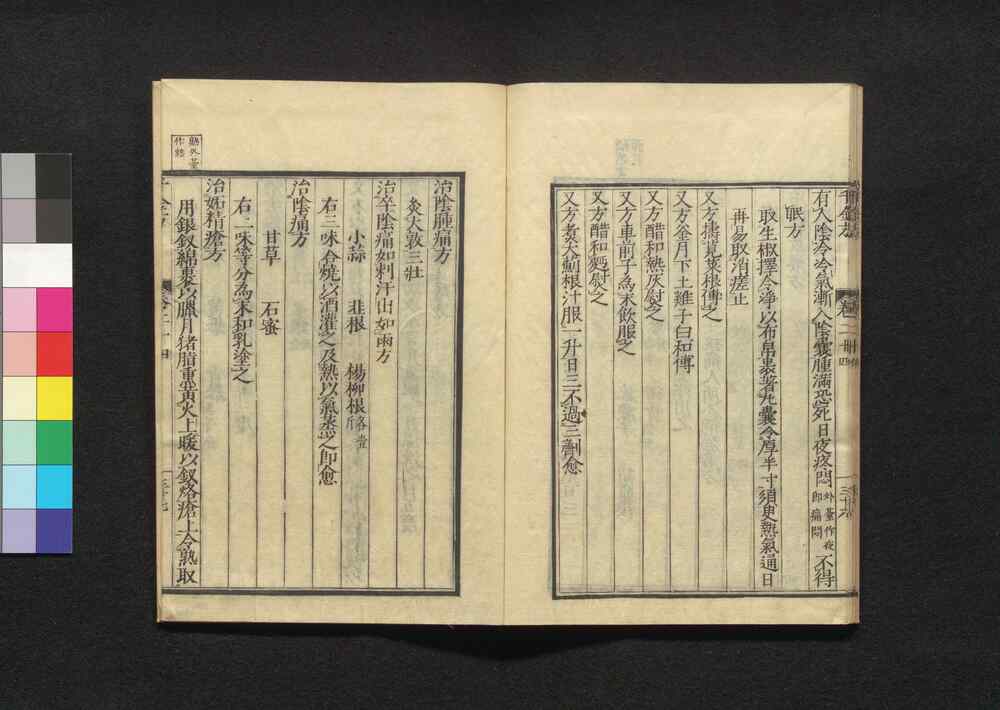 有人陰冷冷氣漸入陰囊腫滿恐死日夜疼悶外臺作夜即痛悶不得
眠方
取生椒擇令淨以布帛裹著丸囊令厚半寸須臾熱氣通日
再易取消瘥止
又方擣莧菜根傅之
又方釜月下土雞子白和傅
又方醋和熱灰熨之
又方醋和麪熨之
又方車前子為末飲服之
又方煮大薊根汁服一升日三不過三劑愈
千金方
三十六
治陰腫痛方
灸大敦三壯
治卒陰痛如刺汗出如雨方
小蒜 韭根 楊柳根
右三味合燒以酒灌之及熱以氣蒸之即愈
治陰痛方
甘草 石蜜
右二味等分為末和乳塗之
治妬精瘡方
用銀釵綿裹以臘月豬脂熏黃火上暖以釵烙瘡上令熟取